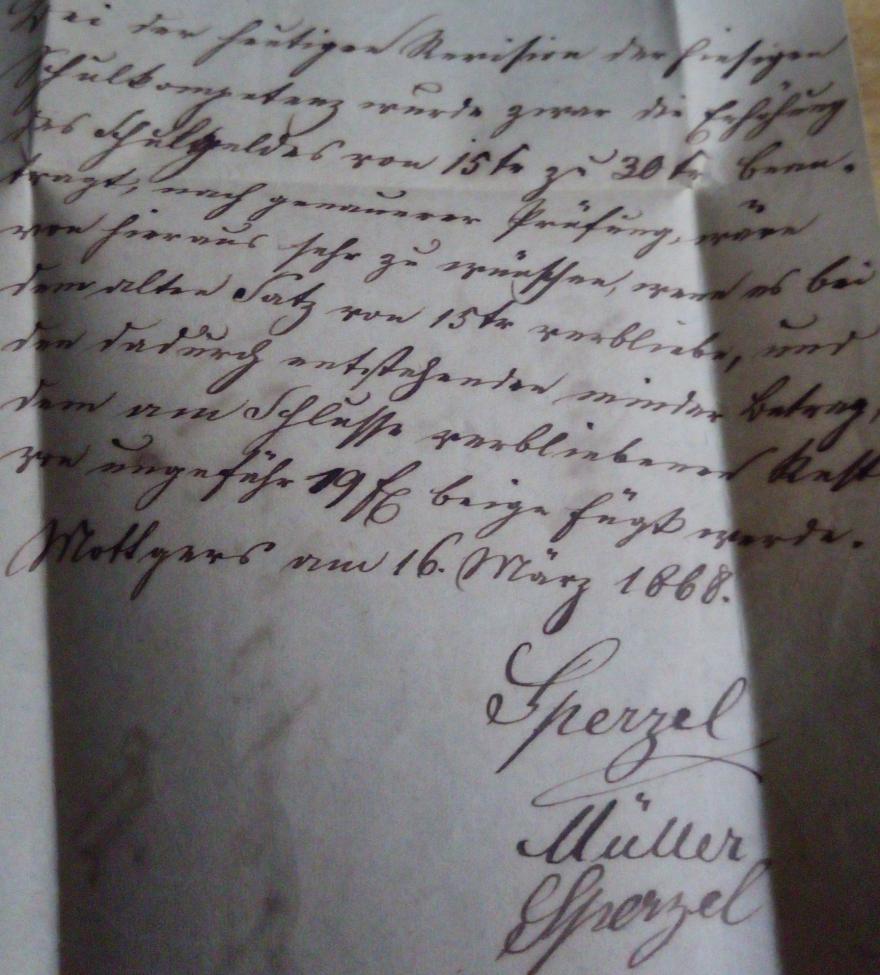 Bei der heutigen Revision der hiesigen
Schulkompetenz wurde zwar die Erhöhung
des Schulgeldes von 15 kr zu 30 kr bean-
tragt, nach genauerer Prüfung, wäre
von hieraus sehr zu wünschen, wenn es bei
dem alten Satz von 15 kr verbliebe, und
den dadurch entstehenden minder Betrag,
dem am Schlusse verbliebenen Rest
von ungefähr 19 fl beige fügt werde.
Mottgers am 16. März 1868.
Sperzel
Müller
Sperzel